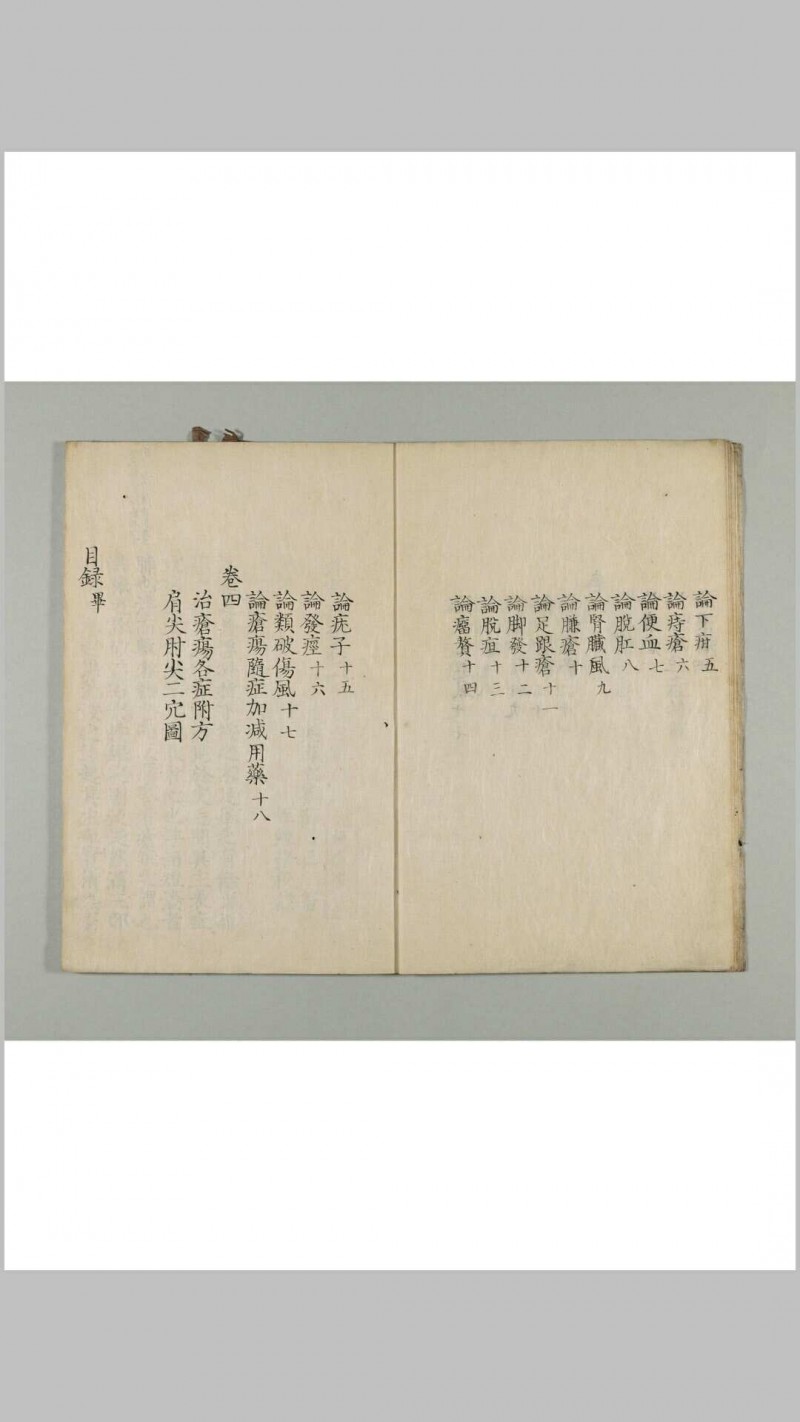 論下疳五
論痔瘡六
論便血七
論脫肛八
論腎臟風九
論臁瘡十
論足跟瘡十一
論脚發十二
論脫疽十三
論瘤贅十四
論疣子十五
論發痙十六
論類破傷風十七
論瘡瘍隨症加減用藥十八
卷四
治瘡瘍各症附方
肩尖肘尖二穴圖
目録畢